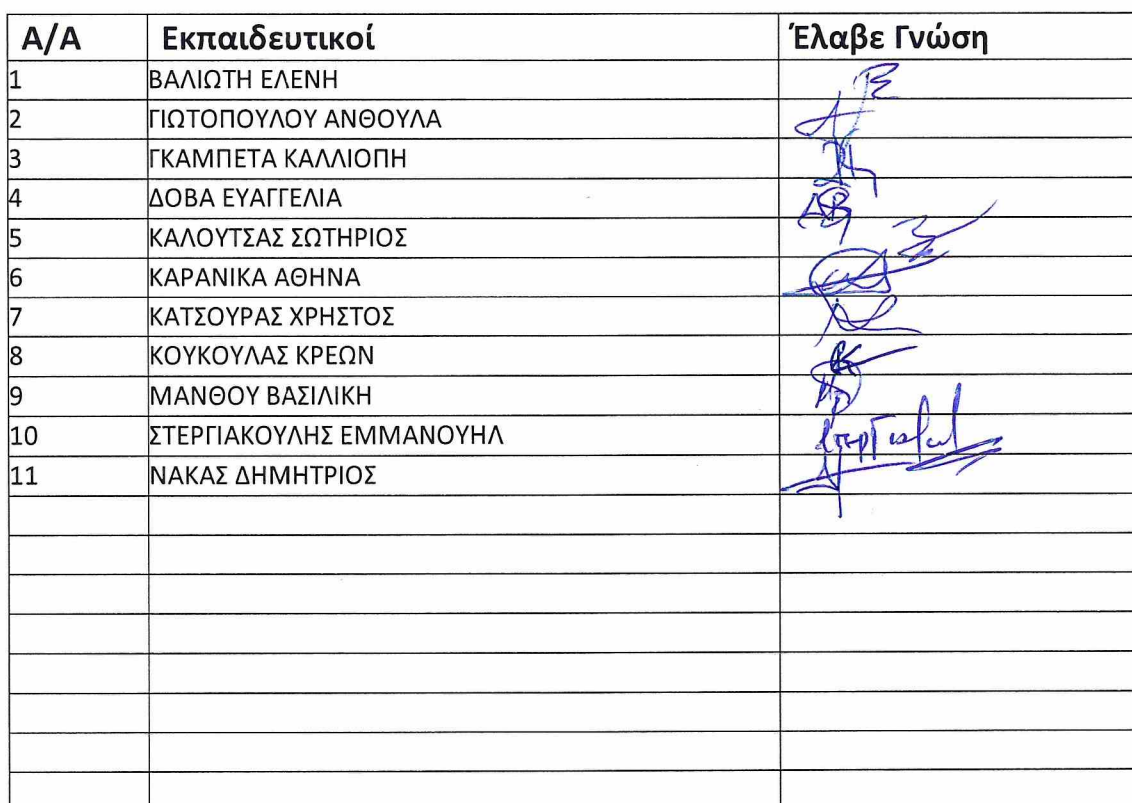 Α/Α Εκπαιδευτικοί Έλαβε Γνώση
1 ΒΑΛΙΩΤΗ ΕΛΕΝΗ
2 ΓΙΩΤΟΠΟΥΛΟΥ ΑΝΘΟΥΛΑ
3 ΓΚΑΜΠΕΤΑ ΚΑΛΛΙΟΠΗ
4 ΔΟΒΑ ΕΥΑΓΓΕΛΙΑ
5 ΚΑΛΟΥΤΣΑΣ ΣΩΤΗΡΙΟΣ
6 ΚΑΡΑΝΙΚΑ ΑΘΗΝΑ
7 ΚΑΤΣΟΥΡΑΣ ΧΡΗΣΤΟΣ
8 ΚΟΥΚΟΥΛΑΣ ΚΡΕΩΝ
9 ΜΑΝΘΟΥ ΒΑΣΙΛΙΚΗ
10 ΣΤΕΡΓΙΑΚΟΥΛΗΣ ΕΜΜΑΝΟΥΗΛ
11 ΝΑΚΑΣ ΔΗΜΗΤΡΙΟΣ